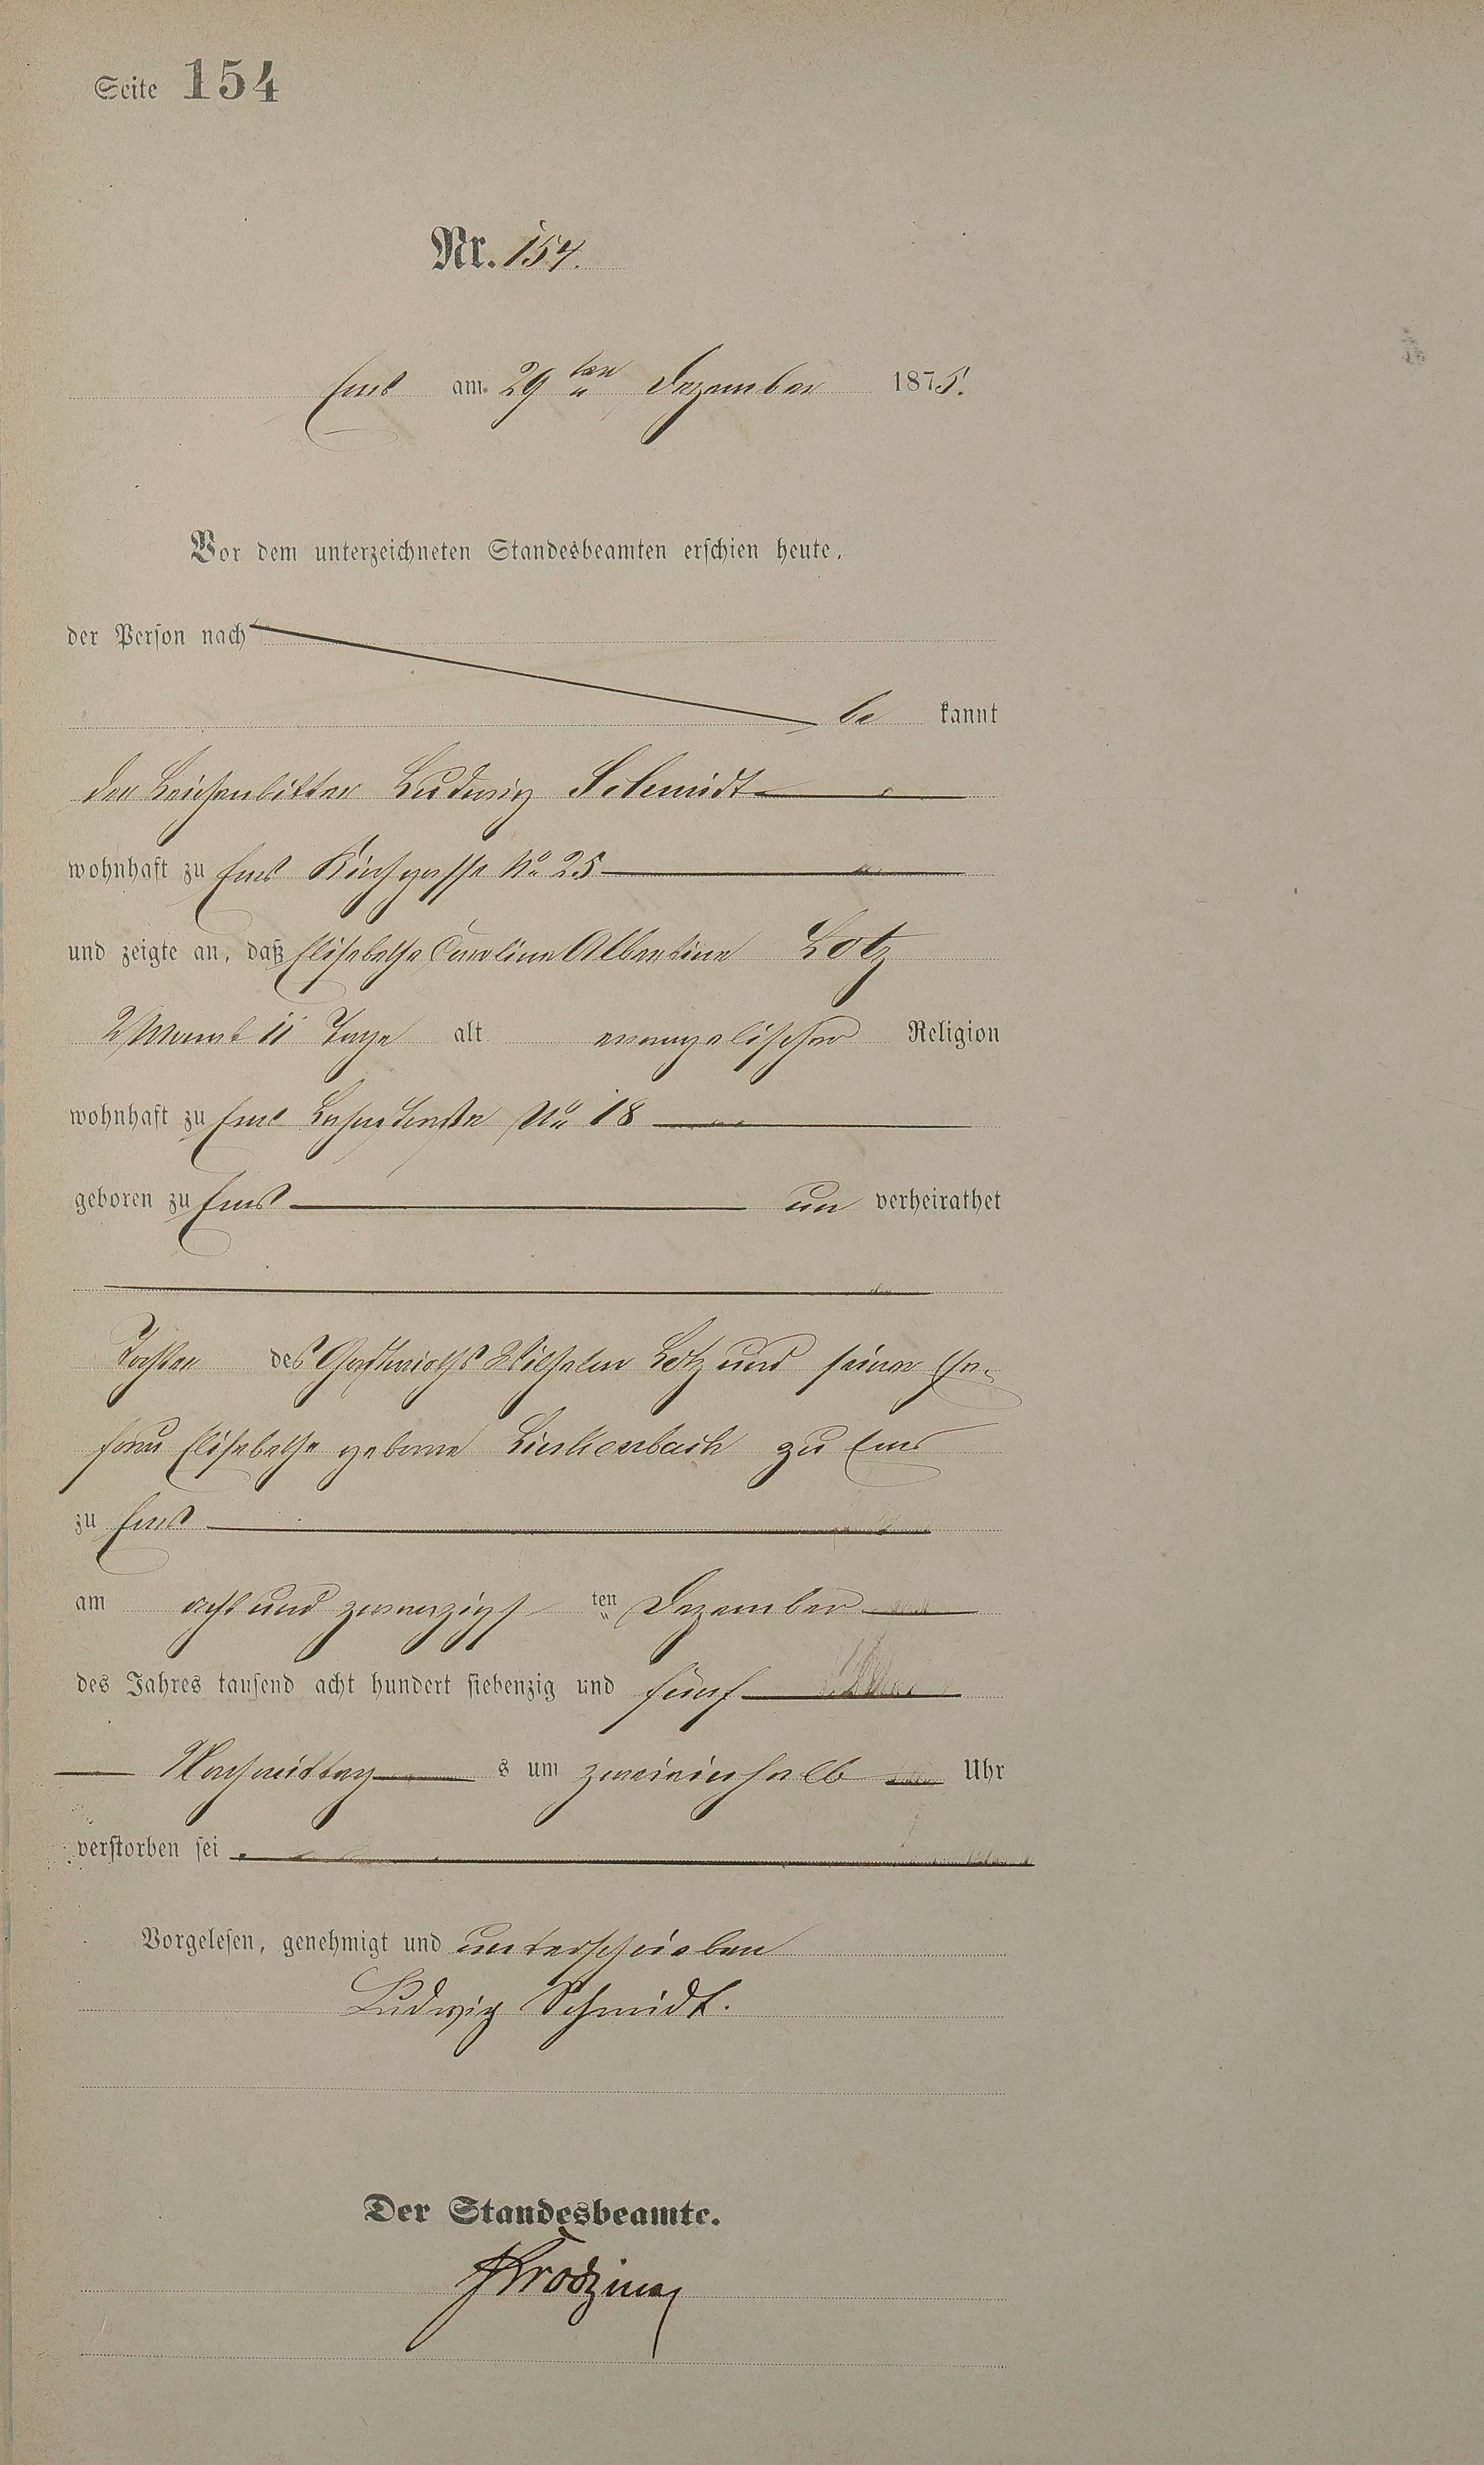 Seite 154
Nr. 154.
Ems am 29 ten Dezember 1875.
Vor dem unterzeichneten Standesbeamten erschien heute,
der Person nach
be kannt
der Leichenbitter Ludwig Schmidt
wohnhaft zu Ems Kirchgasse No 25
und zeigte an, daß Elisabethe Caroline Albertine Lotz
2 Monat 11 Tage alt evangelischer Religion
wohnhaft zu Ems No 18
geboren zu Ems un verheirathet
Tochter des Gastwirths Wilhelm Lotz und seiner Ehe-
frau Elisabethe geborne zu Ems
zu Ems
am acht und zwanzigs ten Dezember
des Jahres tausend acht hundert siebenzig und fünf
Nachmittag s um zweieinhalb Uhr
verstorben sei.
Vorgelesen, genehmigt und unterschrieben
Ludwig Schmidt.
Der Standesbeamte.